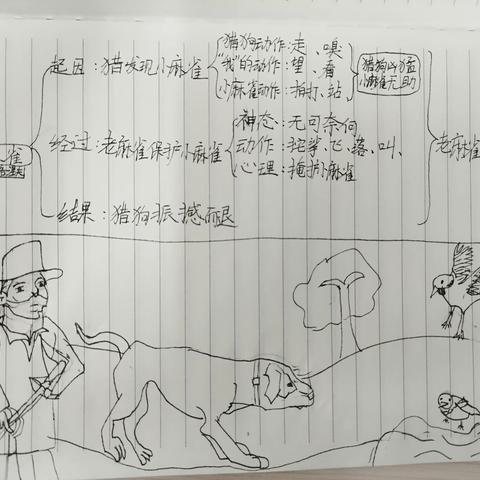 猎狗动作:走、嗅
起因:猎发现小麻雀
"我"的动作:望、看
猎狗凶猛
小麻雀无助
小麻雀动作:拍打、站
雀
神态:无可奈何
经过:老麻雀保护小麻雀
动作:扎挲、飞、落、叫、
老麻雀
心理:掩护小麻雀
结果:猎狗振撼而退